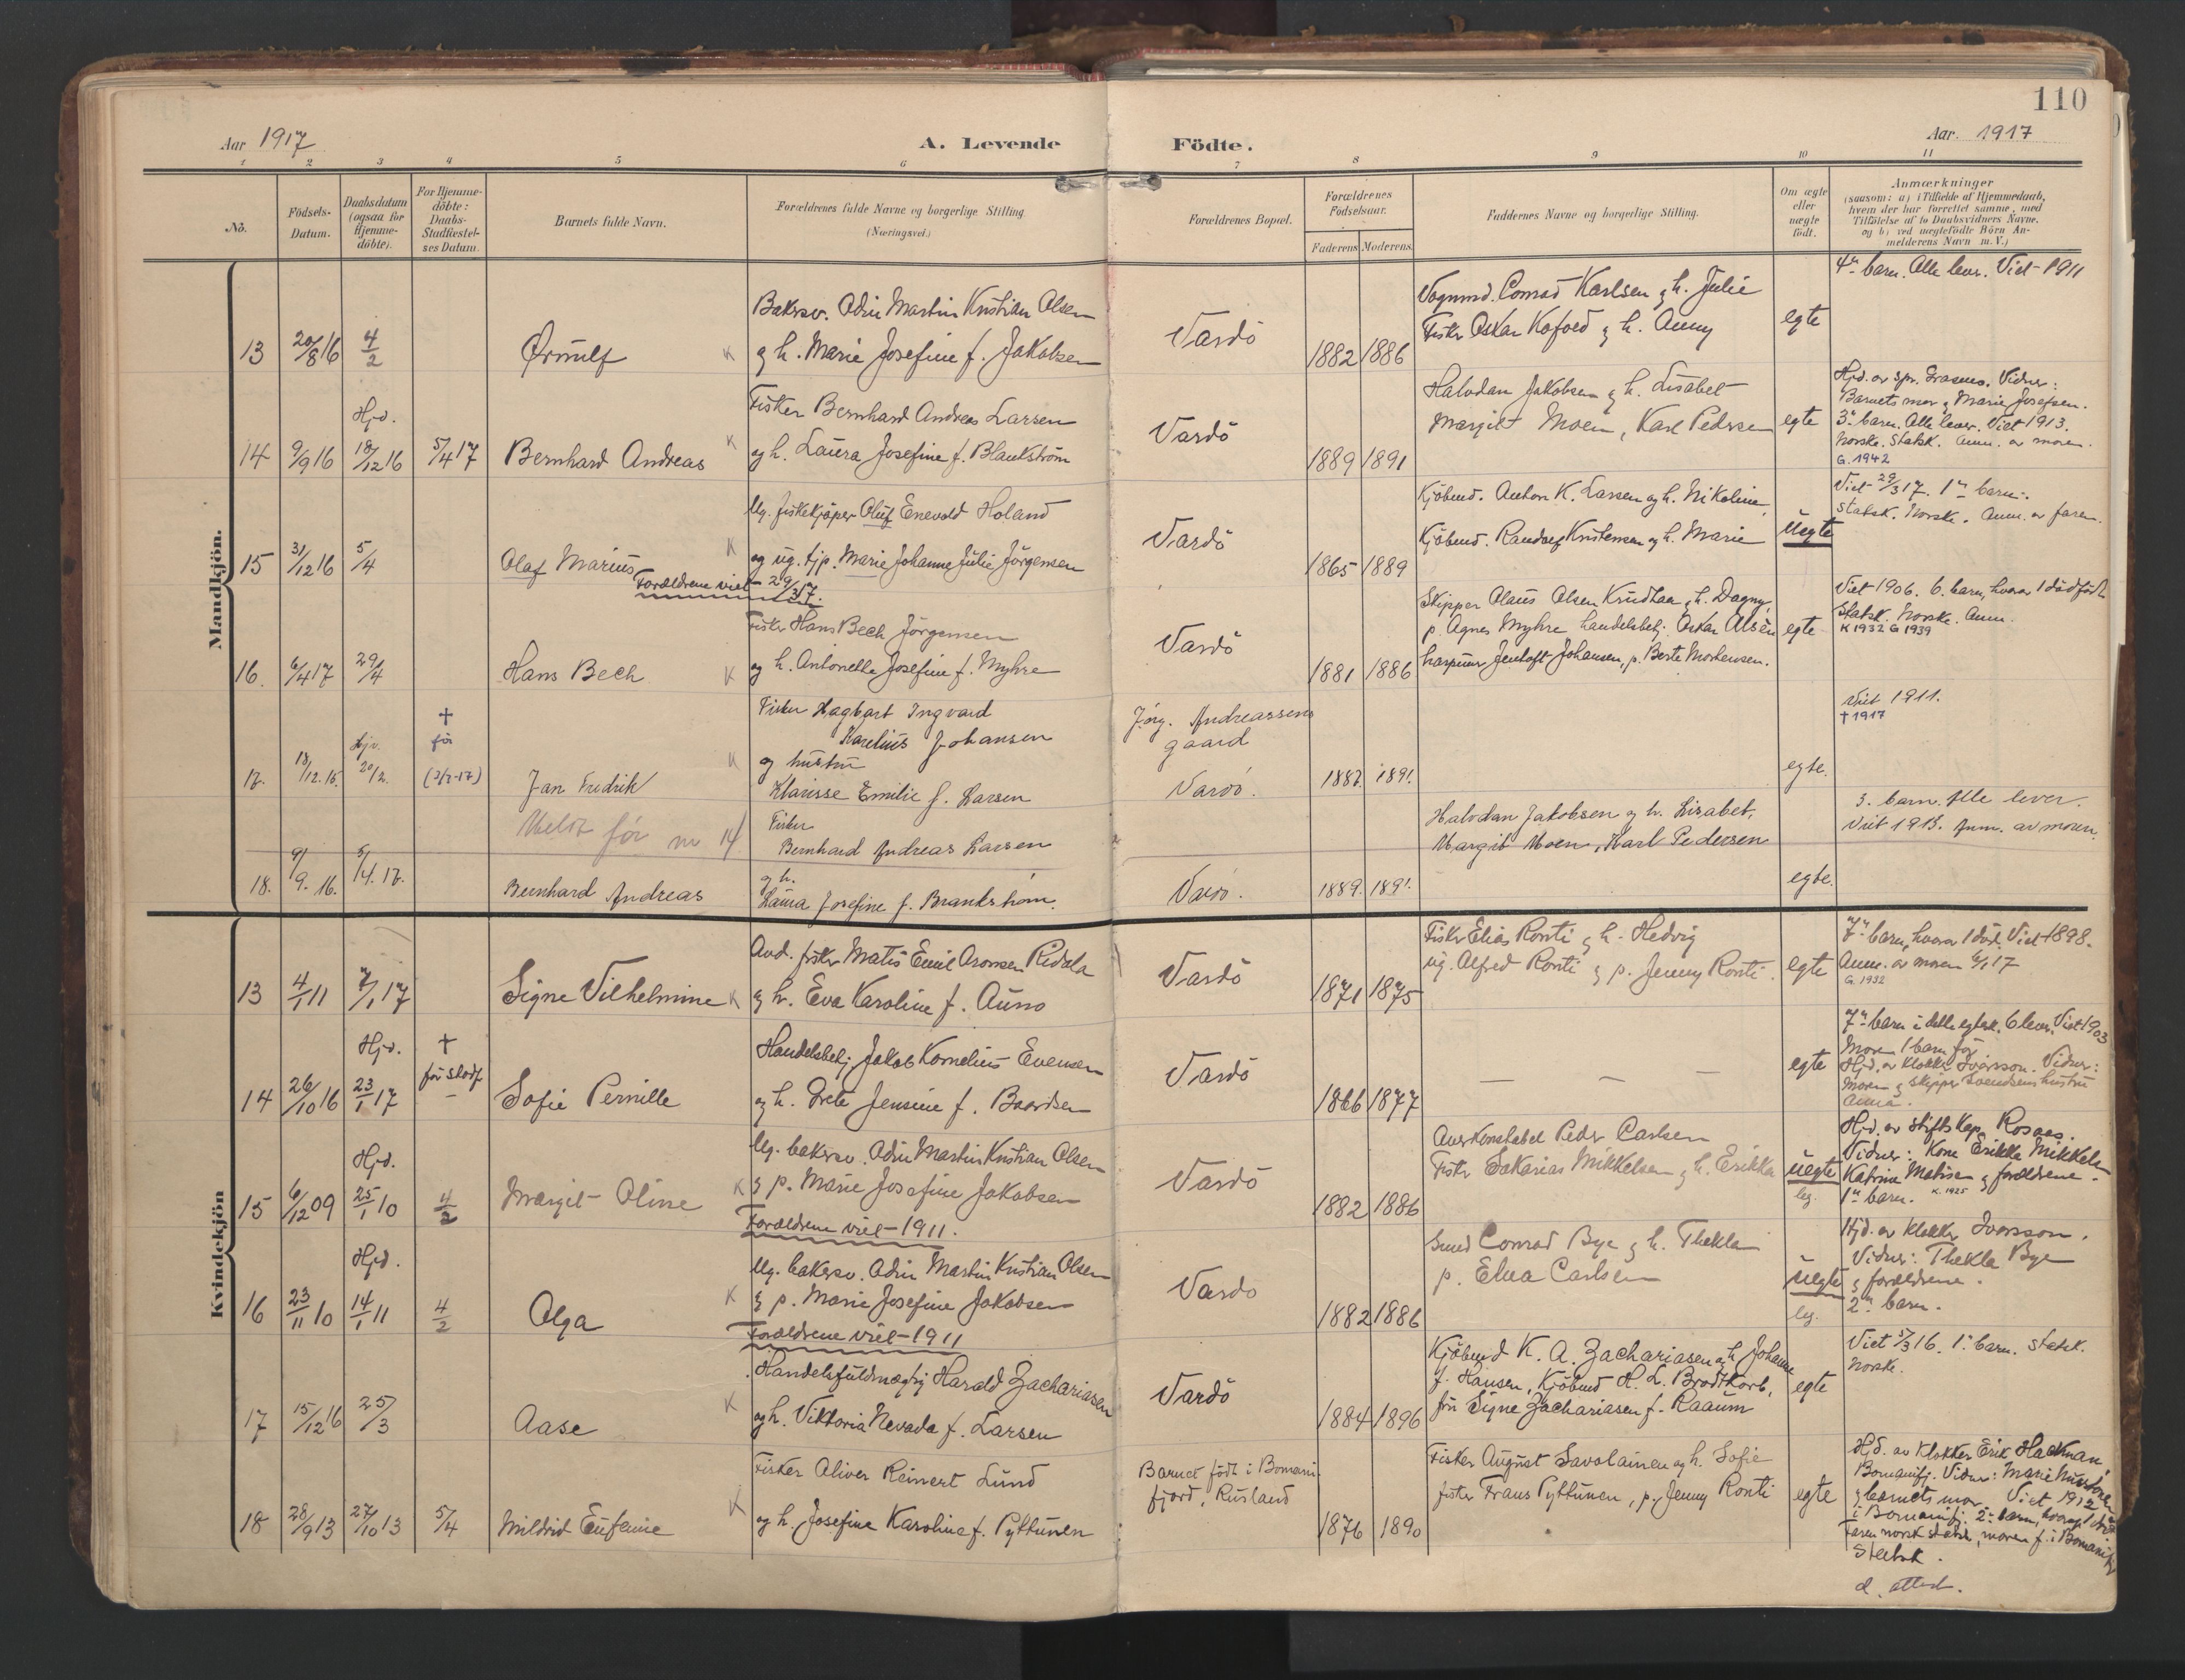 110
Aar 1917
A. Levende
Födte.
Aar. 1917
1 2 3 4 5 6 7 8 9 10 11
No.
Födsels-
Datum.
Daabsdatum
(ogsaa for
Hjemme-
döbte).
For Hjemme-
döbte:
Daabs-
Stadfæstel-
ses Datum.
Barnets fulde Navn.
Forældrenes fulde Navne og borgerlige Stilling
(Næringsvei.)
Forældrenes Bopæl.
Forældrenes
Födselsaar.
Faderens Moderens
Faddernes Navne og borgerlige Stilling.
Om ægte
eller
uægte
födt.
Anmærkninger
(saasom: a) i Tilfælde af Hjemmedaab,
hvem der har forrettet samme, med
Tilföielse af to Daabsvidners Navne.
og b) ved uægtefödte Börn An-
melderens Navn m. V.)
Mandkjön.
13
20/8 16
4/2
Ørnulf
K
Bakersv. Adin Martin Kristian Olsen
g h. Marie Josefine f. Jakobsen
Vardö
1882 1886
Vognmd. Conrad Karlsen g h. Julie
Fisker Oskar Kofoed g h. Anny
egte
4de barn. Alle lever. Viet 1911
14
9/9 16
Hjd.
18/12 16
5/4 17
Bernhard Andreas
K
Fisker Bernhard Andreas Larsen
og h. Laura Josefine f. Blankström
Vardö
1889 1891
Halvdan Jakobsen g h. Lisabet
Margit Moen, Karl Pedersen
egte
Hjd. av spr. Grasmo. Vidner:
Barnets mor g Marie Josefsen.
3de barn. Alle lever. Viet 1913.
Norske. Statsk. Anm. av moren.
G. 1942
15
31/12 16
5/4
Olaf Marius
Forældrene viet 29/3 17.
K
Ug. fiskekjöper Oluf Enevold Holand
og ug. tjp. Marie Johanne Julie Jörgensen
Vardö
1865 1889
Kjöbmd. Anton K. Larsen og h. Nikoline,
Kjöbmd. Randolf Kristensen og h. Marie
uegte
Viet 29/3 17. 1te barn.
Statsk. Norske. Anm. av faren.
16.
6/4 17
29/4
Hans Bech
K
Fisker Hans Bech Jörgensen
og h. Antonette Josefine f. Myhre
Vardö
1881 1886
Skipper Olaus Olsen Krudtaa g h. Dagny,
p. Agnes Myhre handelsbetj. Oskar Olsen
harpuner Jentoft Johansen, p. Berte Mortensen.
egte
Viet 1906. 6. barn, hvorav 1 dödfödt
Statsk. Norske. Anm.
K 1932 G 1939
17.
18/12. 16.
Hjv.
20/12.
†
för
(3/3-17)
Jan Fredrik
K
Fisker Hagbart Ingvard
Karelius Johansen
og hustru
Klarisse Emilie f. Larsen
Jörg. Andreassens
gaard
Vardö.
1891.
egte.
Viet 1911.
† 1917
18.
9/9. 16.
5/4. 17.
Meldt för nr 14
Bernhard Andreas
Fisker
Bernhard Andreas Larsen
g h.
Laura Josefine f. Brankström.
Vardö.
1889. 1891.
Halvdan Jakobsen og h. Lisabet,
Margit Moen, Karl Pedersen
egte.
3. barn. Alle lever.
Viet 1913. Anm. av moren.
Kvindekjön
13
4/1 11
7/1 17
Signe Vilhelmine
K
Avd. fisker Matis Emil Aronsen Ridala
g h. Eva Karoline f. Auno
Vardö
1871 1875
Fisker Elias Ronti g h. Hedvig
ug. Alfred Ronti g p. Jenny Ronti.
egte
7de barn, hvorav 1 död. Viet 1898.
Anm. av moren 6/1 17
G. 1932
14
26/10 16
Hjd.
23/1 17
†
för stadf
–
Sofie Pernille
Handelsbetj. Jakob Kornelius Evensen
og h. Grete Jensine f. Baardsen
Vardö
1866 1877
— — —
egte
7de barn i dette egtesk. 6 lever. Viet 1903
Moren 1 barn för
Hjd. av klokker Ivarsson. Vidner:
Moren g skipper Svendsens hustru
Anna.
15
6/12 09
Hjd.
25/1 10
4/2
Margit Oline
K
Ug. bakersv. Adin Martin Kristian Olsen
g p. Marie Josefine Jakobsen
Forældrene viet 1911.
Vardö
1882 1886
Averkonstabel Peder Carlsen
Fisker Sakarias Mikkelsen g h. Erikka
uegte
leg.
Hjd. av stiftskap. Rosaas.
Vidner: Kone Erikka Mikkelsen
Katrine Matisen g forældrene.
1te barn. K. 1925
16
23/11 10
Hjd.
14/1 11
4/2
Olga
K
Ug. bakersv. Adin Martin Kristian Olsen
g p. Marie Josefine Jakobsen
Forældrene viet 1911
Vardö
1882 1886
Smed Conrad Bye g h. Thekla
p. Elna Carlsen
uegte
leg.
Hjd. av klokker Ivarsson.
Vidner: Thekla Bye
g forældrene.
2de barn.
17
15/12 16
25/3
Aase
K
Handelsfuldmægtig Harald Zachariasen
og h. Viktoria Nevada f. Larsen
Vardö
1884 1896
Kjöbmd K. A. Zachariasen og h Johanne
f. Hansen, Kjöbmd H. L. Brodtkorb,
fru Signe Zachariasen f. Raaum
egte
Viet 5/3 16. 1. barn. Statsk.
Norske.
18
28/9 13
27/10 13
5/4
Mildrid Eufemie
K
Fisker Oliver Reinert Lund
og h. Josefine Karoline f. Pyttünen
Barnet födt i Bomani-
fjord, Rusland
1876 1890
Fisker August Savolainen og h. Sofie
fisker Frans Pyttünen, p. Jenny Ronti
egte
Hjd. av klokker Erik Hackman,
Bomanifj. Vidner: Marie Mustonen
g barnets mor. Viet 1912
i Bomanifj. 2. barn, hvorav 1 död.
Faren norsk statsb., moren f. i Bomanifj
Statsk.
d. attest.